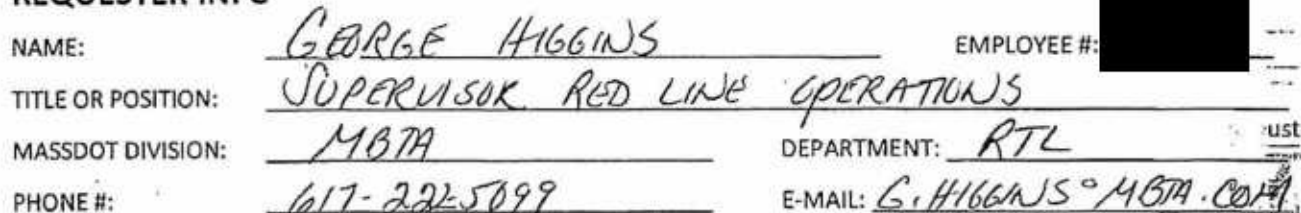 REQUESTER INFO
NAME: GEORGE HIGGINS EMPLOYEE #:
TITLE OR POSITION: SUPERVISOR RED LINE OPERATIONS
MASSDOT DIVISION: MBTA DEPARTMENT: RTL
PHONE #: 617-222-5099 E-MAIL: G.HIGGINS@MBTA.COM
ust